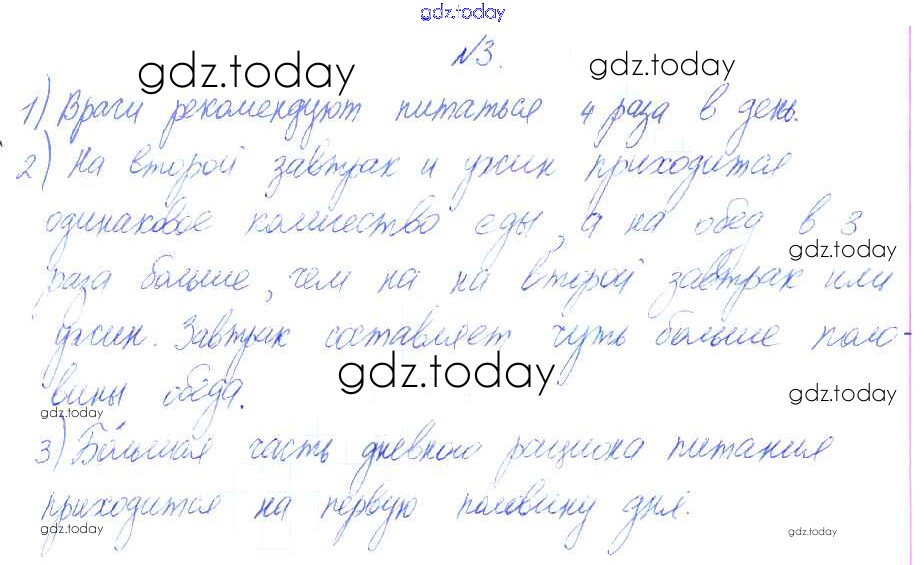 gdz.today
№3.
gdz.today
gdz.today
1) Врачи рекомендуют питаться 4 раза в день.
2) На второй завтрак и ужин приходится
одинаковое количество еды, а на обед в 3
gdz.today
раза больше, чем на на второй завтрак или
ужин. Завтрак составляет чуть больше поло-
gdz.today
вины обеда.
gdz.today
gdz.today
3) Бо́льшая часть дневного рациона питания
приходится на первую половину дня.
gdz.today
gdz.today